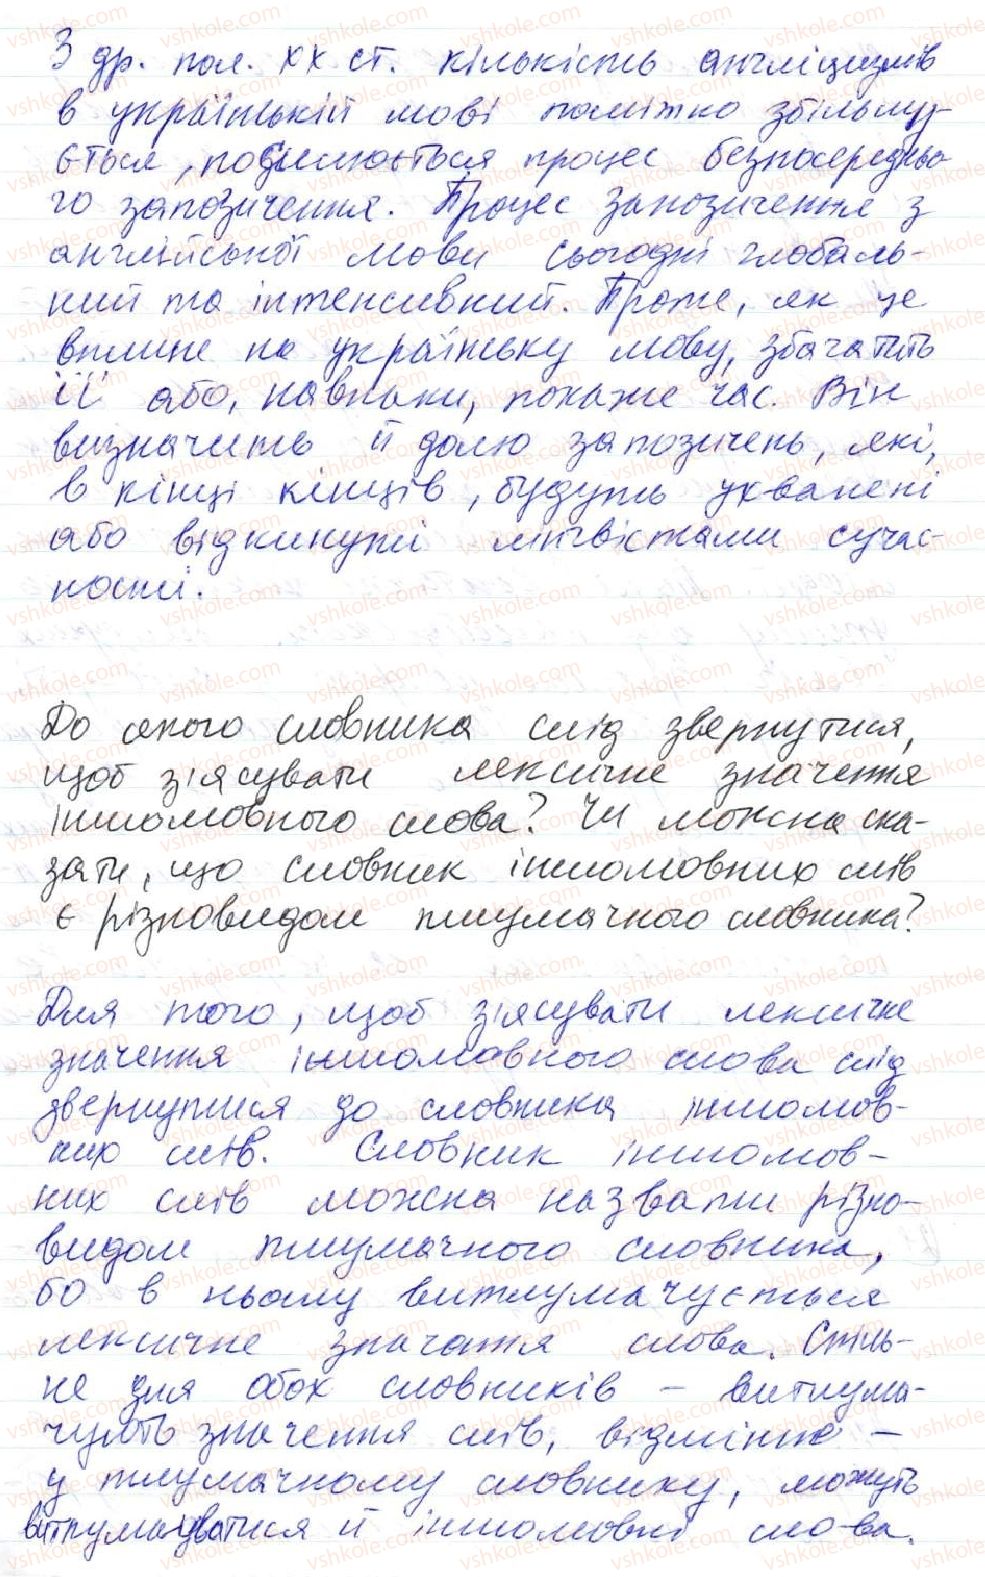 З др. пол. ХХ ст. кількість англіцизмів
в українській мові помітко збільшу-
ється, посилюється процес безпосередньо-
го запозичення. Процес запозичення з
англійської мови сьогодні глобаль-
ний та інтенсивний. Проте, як це
вплине на українську мову, збагатить
її або, навпаки, покаже час. Він
визначить й долю запозичень, які,
в кінці кінців, будуть ухвалені
або відкинуті лінгвістами сучас-
ності.
До якого словника слід звернутися,
щоб зіясувати лексичне значення
іншомовного слова? Чи можна ска-
зати, що словник іншомовних слів
є різновидом тлумачного словника?
Для того, щоб зіясувати лексичне
значення іншомовного слова слід
звернутися до словника іншомов-
них слів. Словник іншомов-
них слів можна назвати різно-
видом тлумачного словника,
бо в ньому витлумачується
лексичне значення слова. Спіль-
не для обох словників – витлума-
чують значення слів, відмінне –
у тлумачному словнику, можуть
витлумачуватися й іншомовні слова.